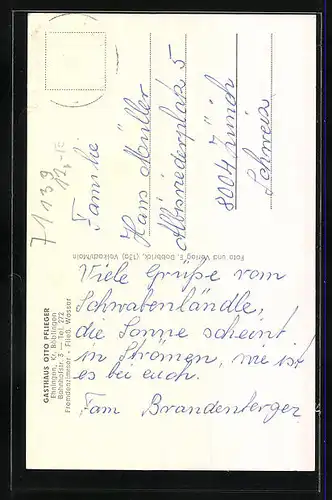 GASTHAUS OTTO PFLIEGER
Ehningen, Kr. Böblingen
Bahnhofstr. 3 — Tel. 272
Fremdenzimmer - Fließ. Wasser
71139
12,-
Viele Grüße vom
Schwabenländle,
die Sonne scheint
in Strömen, wie ist
es bei euch.
Fam Brandenberger
Foto und Verlag F. (17a)
Familie
Hans Müller
Albisriederplatz 5
8004 Zürich
Schweiz